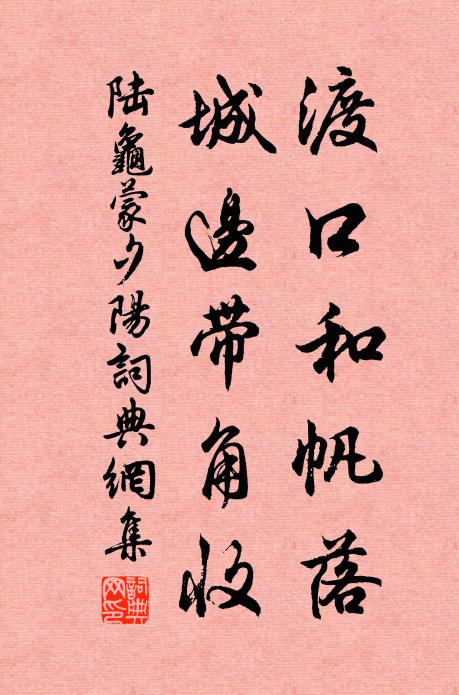 渡口和帆落
城邊帶角收
陆龜蒙夕陽詞典網集
詞典網印